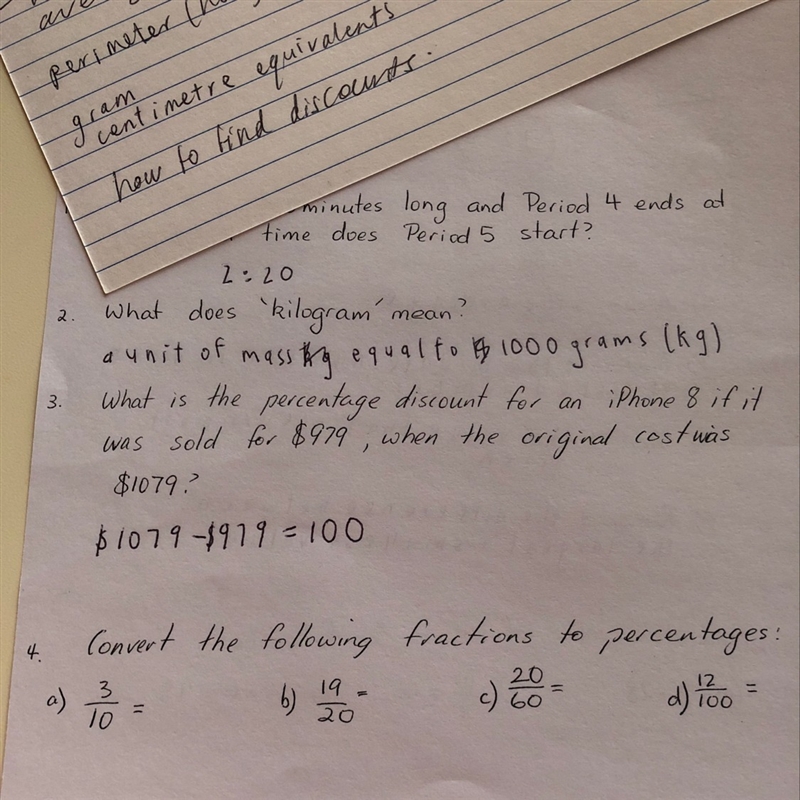 perimeter
gram
centimetre equivalents
how to find discounts.
minutes long and Period 4 ends at
time does Period 5 start?
2:20
2. What does 'kilogram' mean?
a unit of mass equal to 1000 grams (kg)
3. What is the percentage discount for an iPhone 8 if it
was sold for $979, when the original cost was
$1079?
$1079-$979=100
4. Convert the following fractions to percentages:
a) 3/10 = b) 19/20 = c) 20/60 = d) 12/100 =